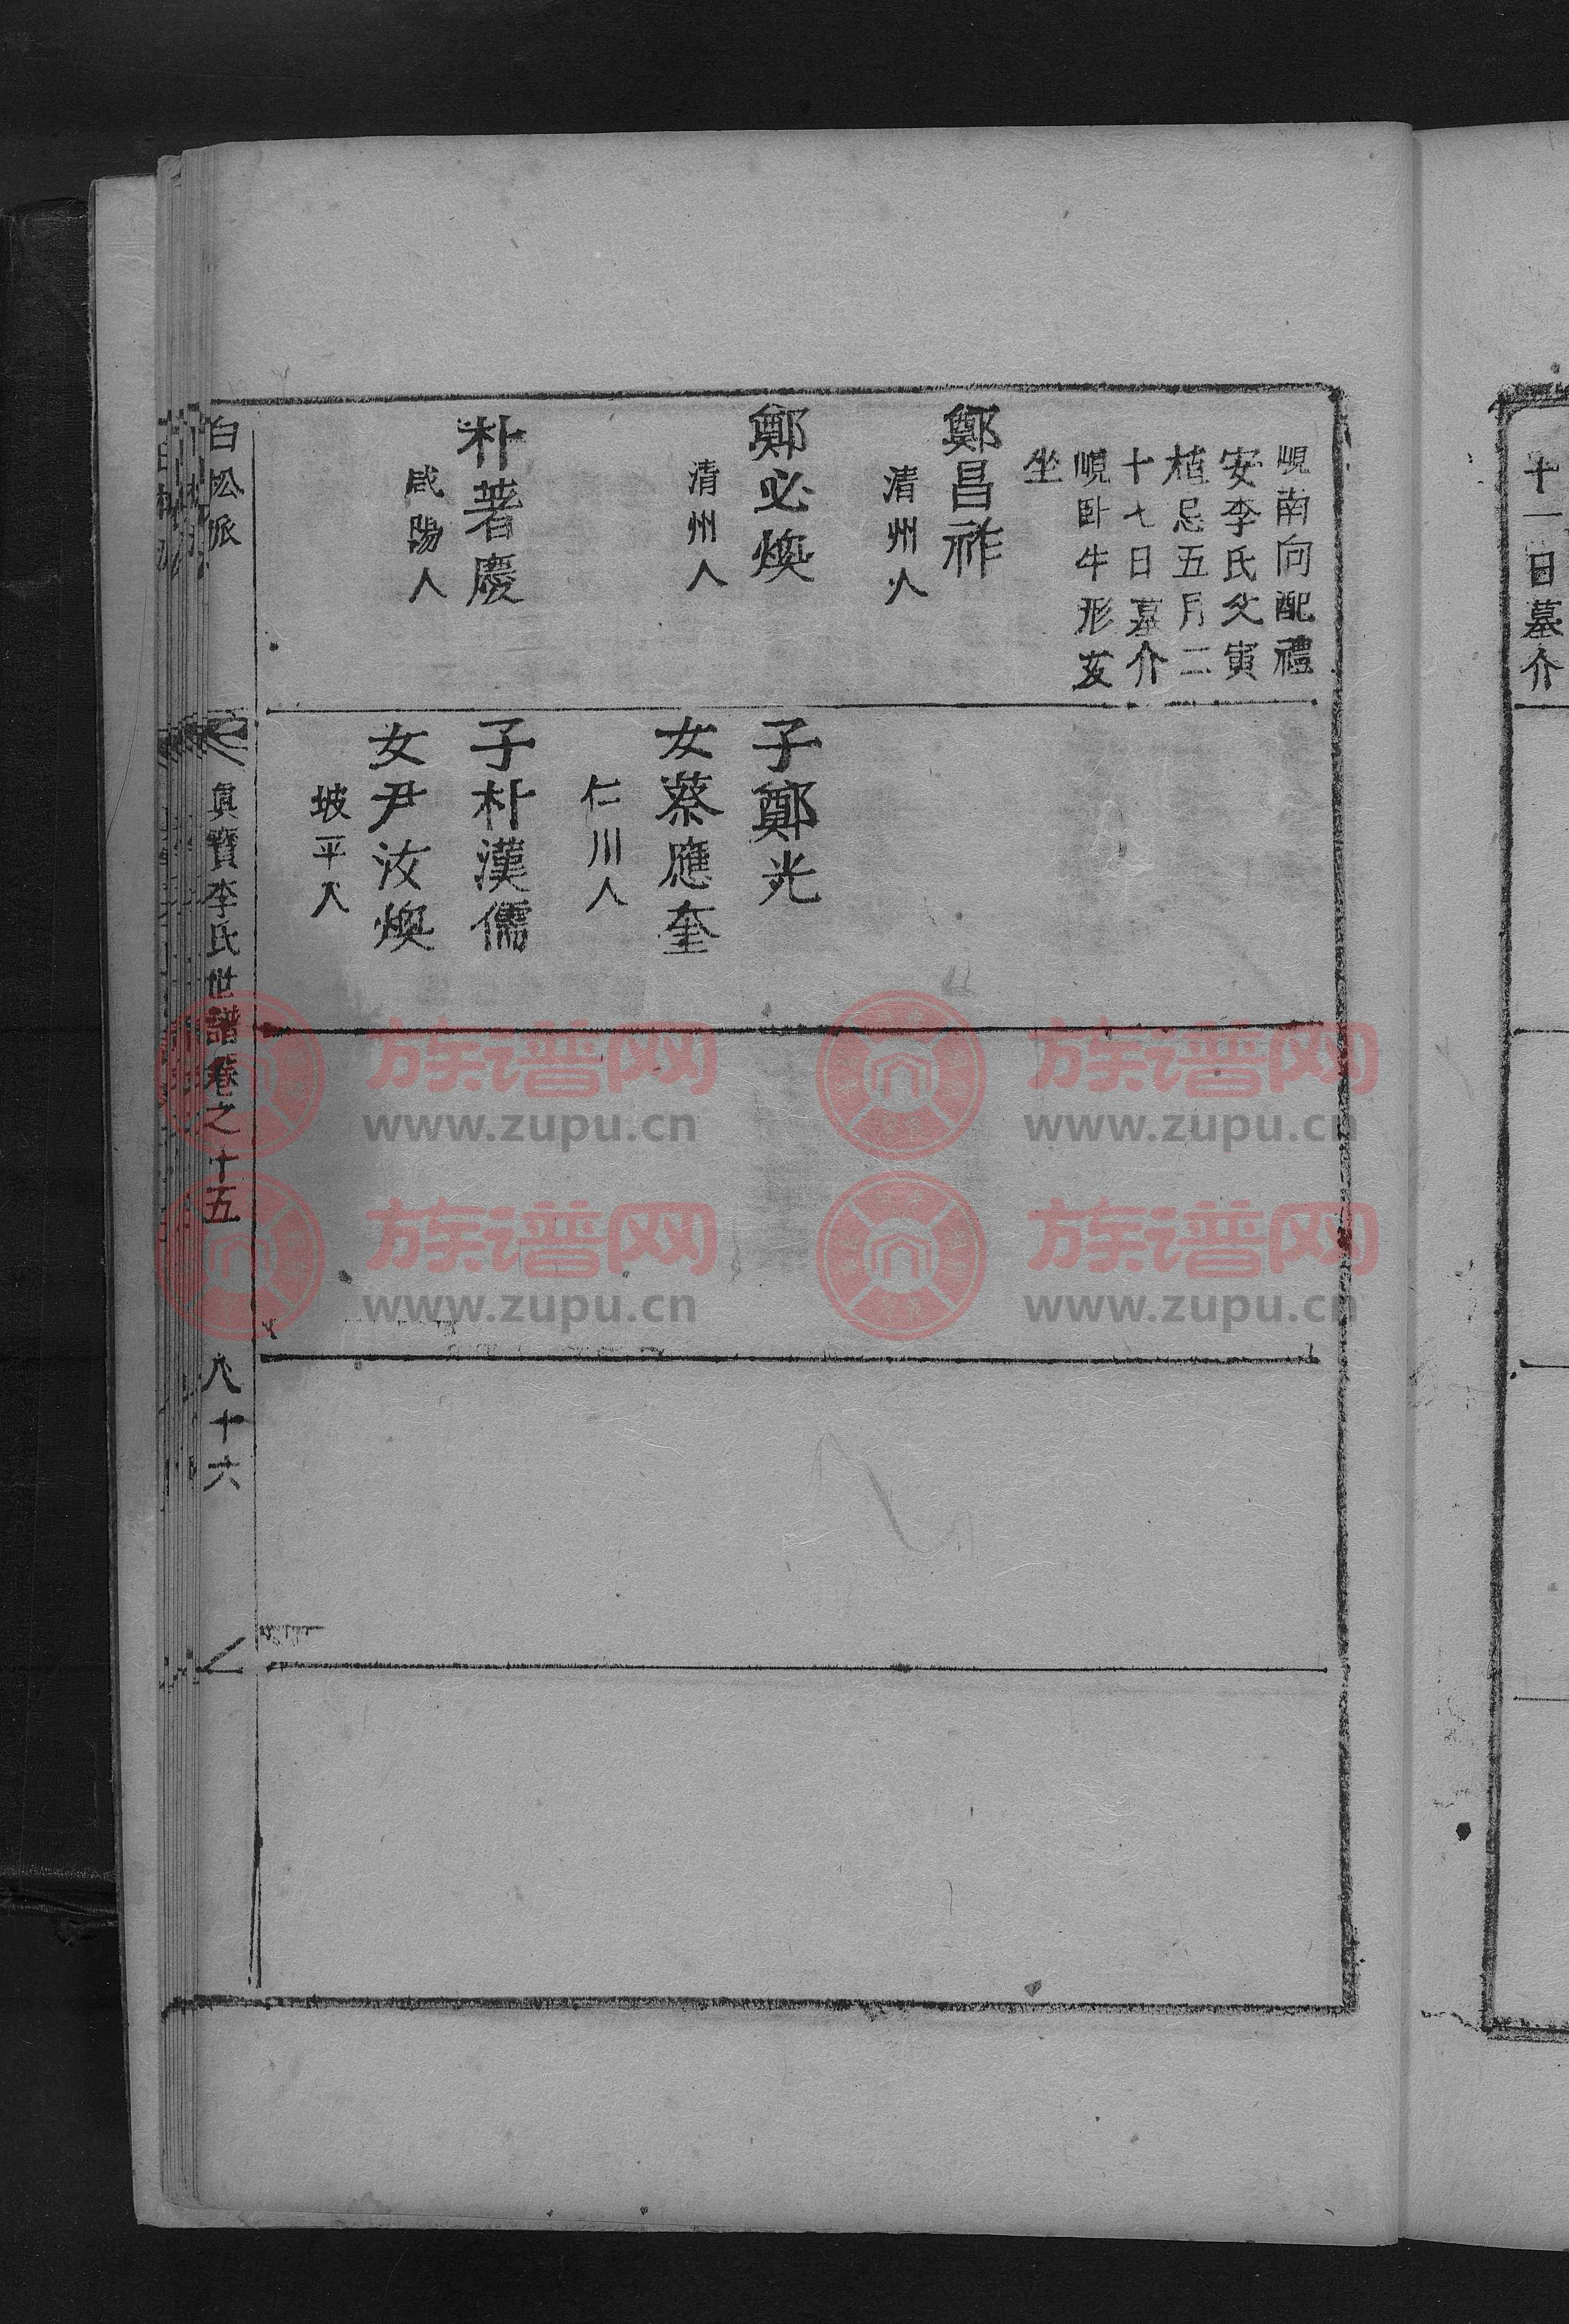 十一日墓介
峴南向配禮
安李氏父寅
植忌五月二
十七日墓介
峴卧牛形亥
坐
鄭昌祚
清州人
鄭必煥
清州人
朴著慶
咸陽人
子鄭光
女蔡應奎
仁川人
子朴漢儒
女尹汝煥
坡平人
白松派
眞寶李氏世譜卷之十五
八十六
族谱网
www.zupu.cn
族谱网
www.zupu.cn
族谱网
www.zupu.cn
族谱网
www.zupu.cn